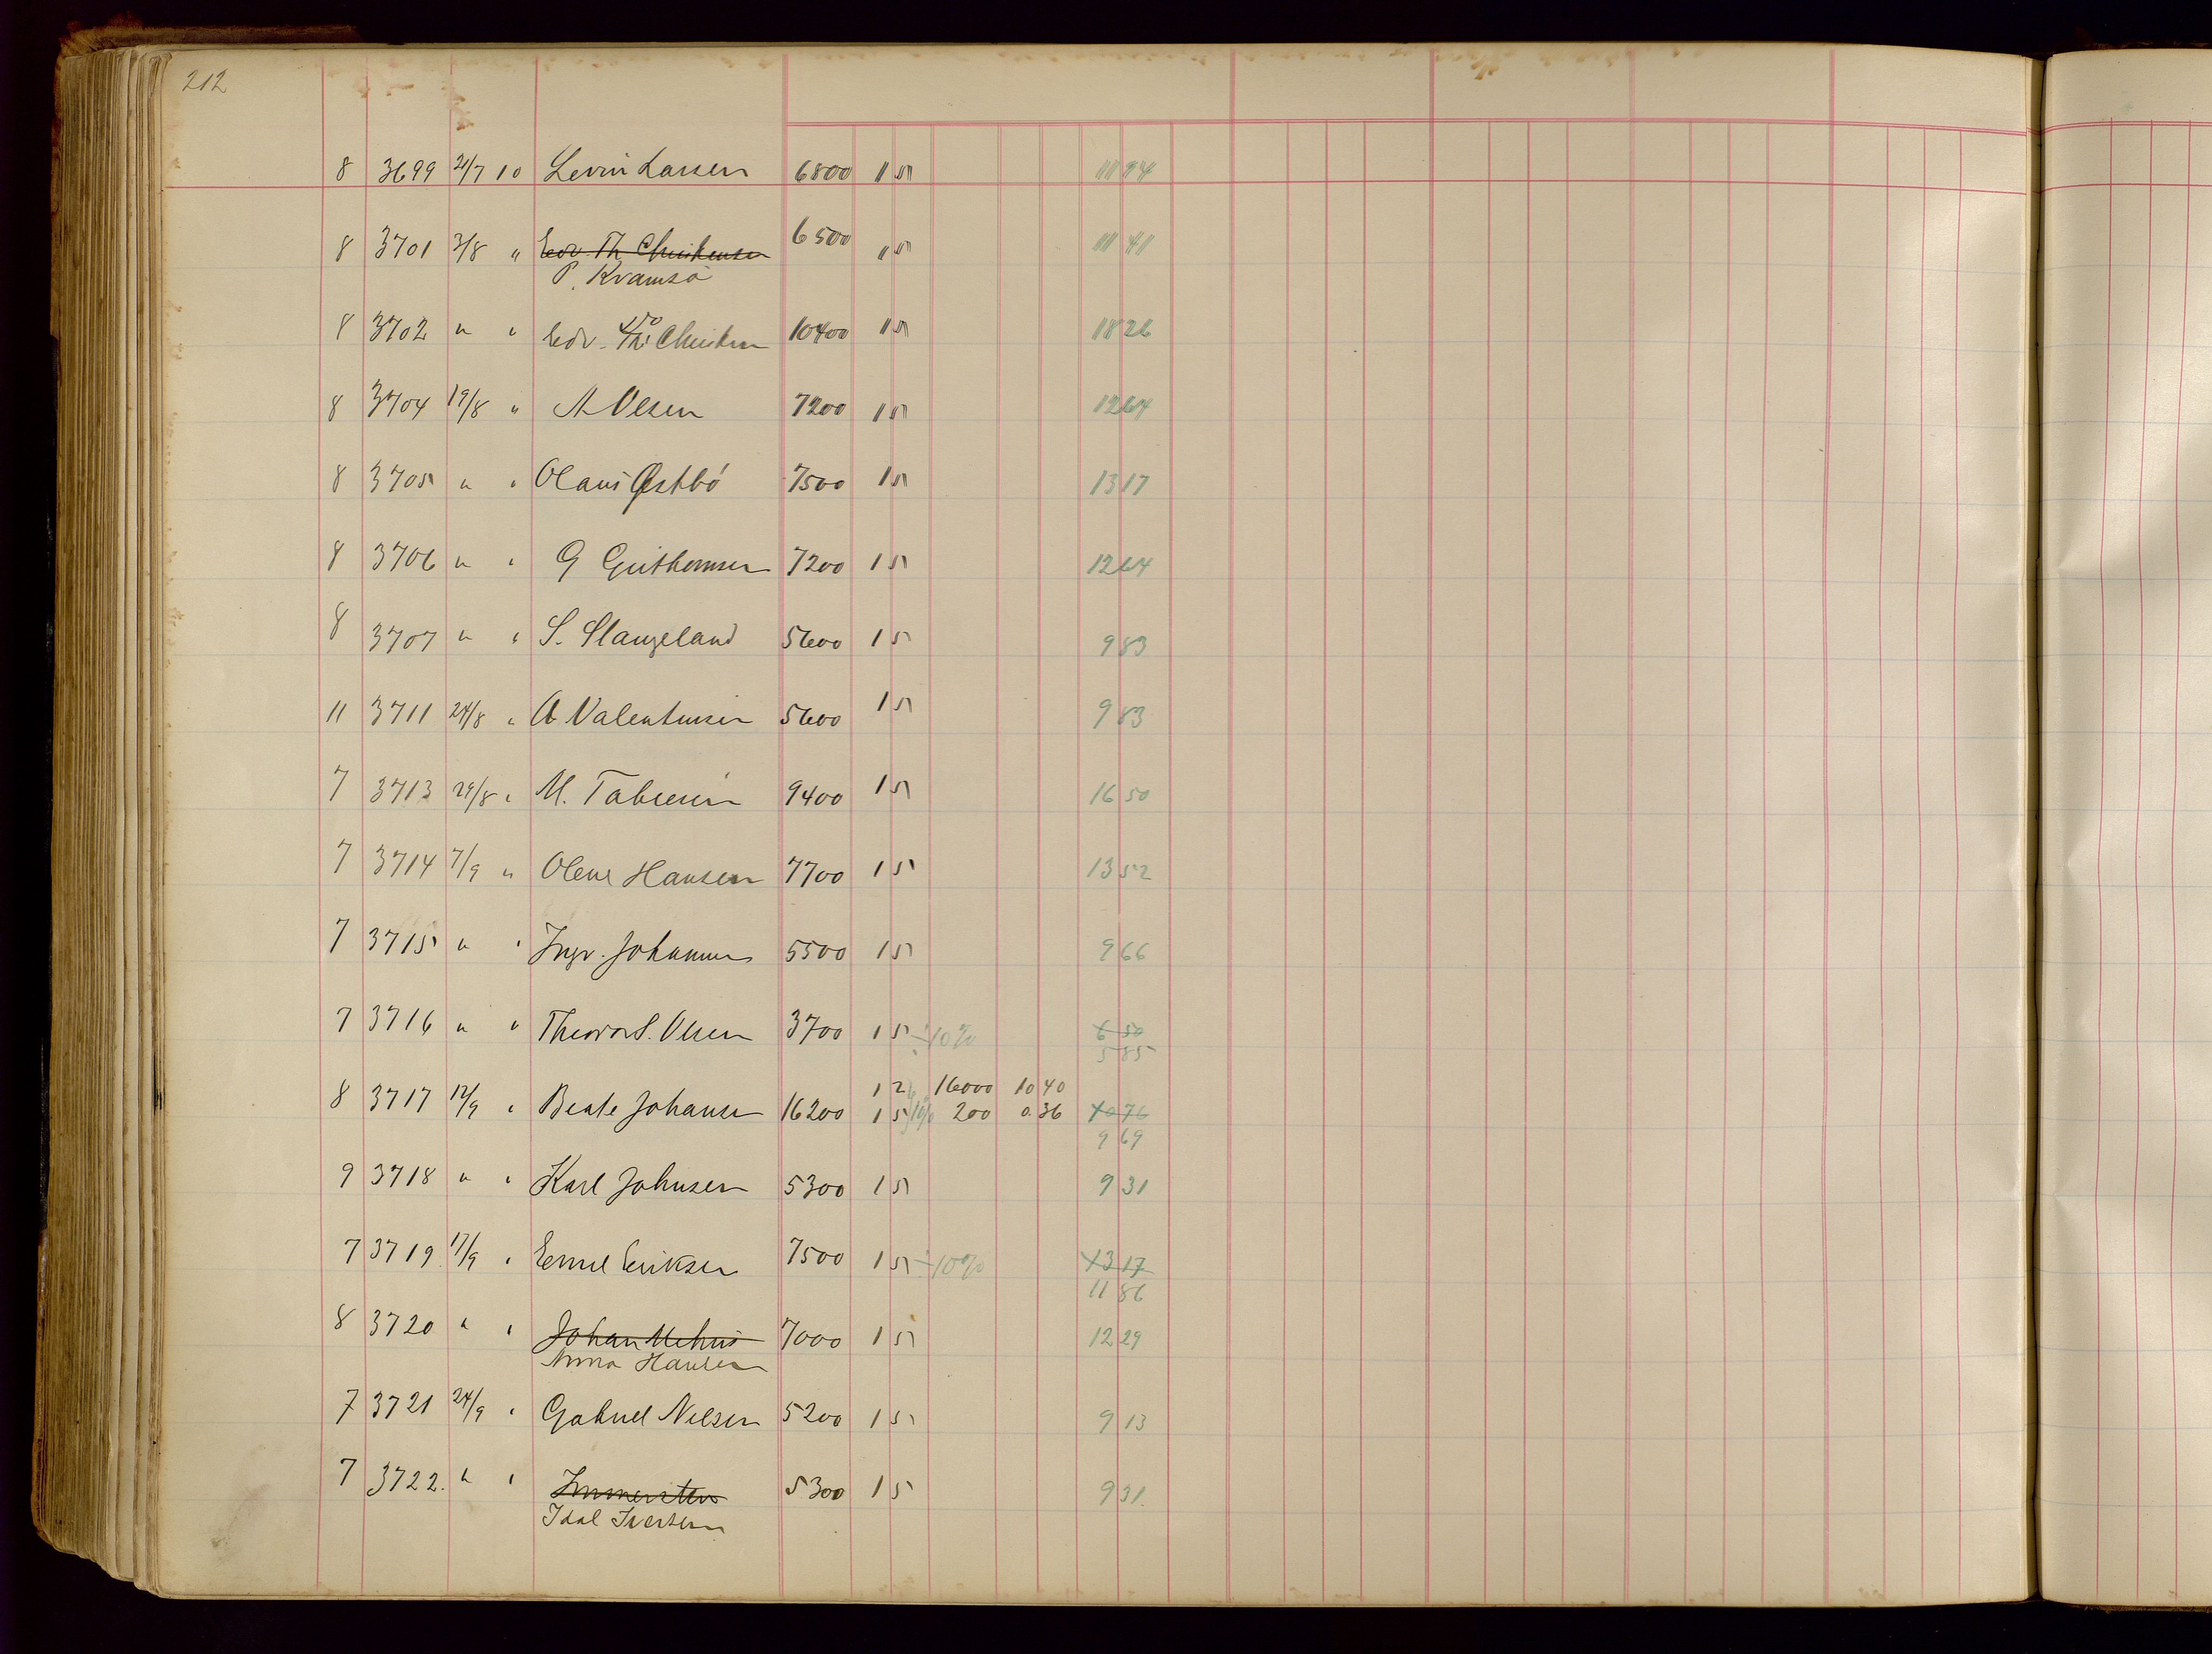 212
8 3699 21/7 10 Levin Larsen 6800 1 5 11 94
8 3701 3/8 " Edv. Th. Christensen 6500 1 5 11 41
P. Kvamsø
8 3702 " " Edv. Th. Christensen 10400 1 5 18 26
8 3704 19/8 " A Olsen 7200 1 5 12 64
8 3705 " " Olaus Østbö 7500 1 5 13 17
8 3706 " " G 7200 1 5 12 64
8 3707 " " S. Stangeland 5600 1 5 9 83
11 3711 24/8 " A Valentinsen 5600 1 5 9 83
7 3713 29/8 " M. 9400 1 5 16 50
7 3714 7/9 " Olene Hansen 7700 1 5 13 52
7 3715 " " Ingv. Johannes 5500 1 5 9 66
7 3716 " " Theodor S. Olsen 3700 1 5 ÷10% 6 50
5 85
1 2 16000 10 40
8 3717 12/9 " Beate Johansen 16200 1 5 10% 200 0.36 10 76
9 69
9 3718 " " Karl Johnsen 5300 1 5 9 31
7 3719 17/9 " Emil Eriksen 7500 1 5 ÷10% 13 17
11 86
8 3720 " " Johan Mehus 7000 1 5 12 29
Anna Hansen
7 3721 24/9 " Gabriel Nilsen 5200 1 5 9 13
7 3722. " " 5300 1 5 9 31.
Idal Iversen